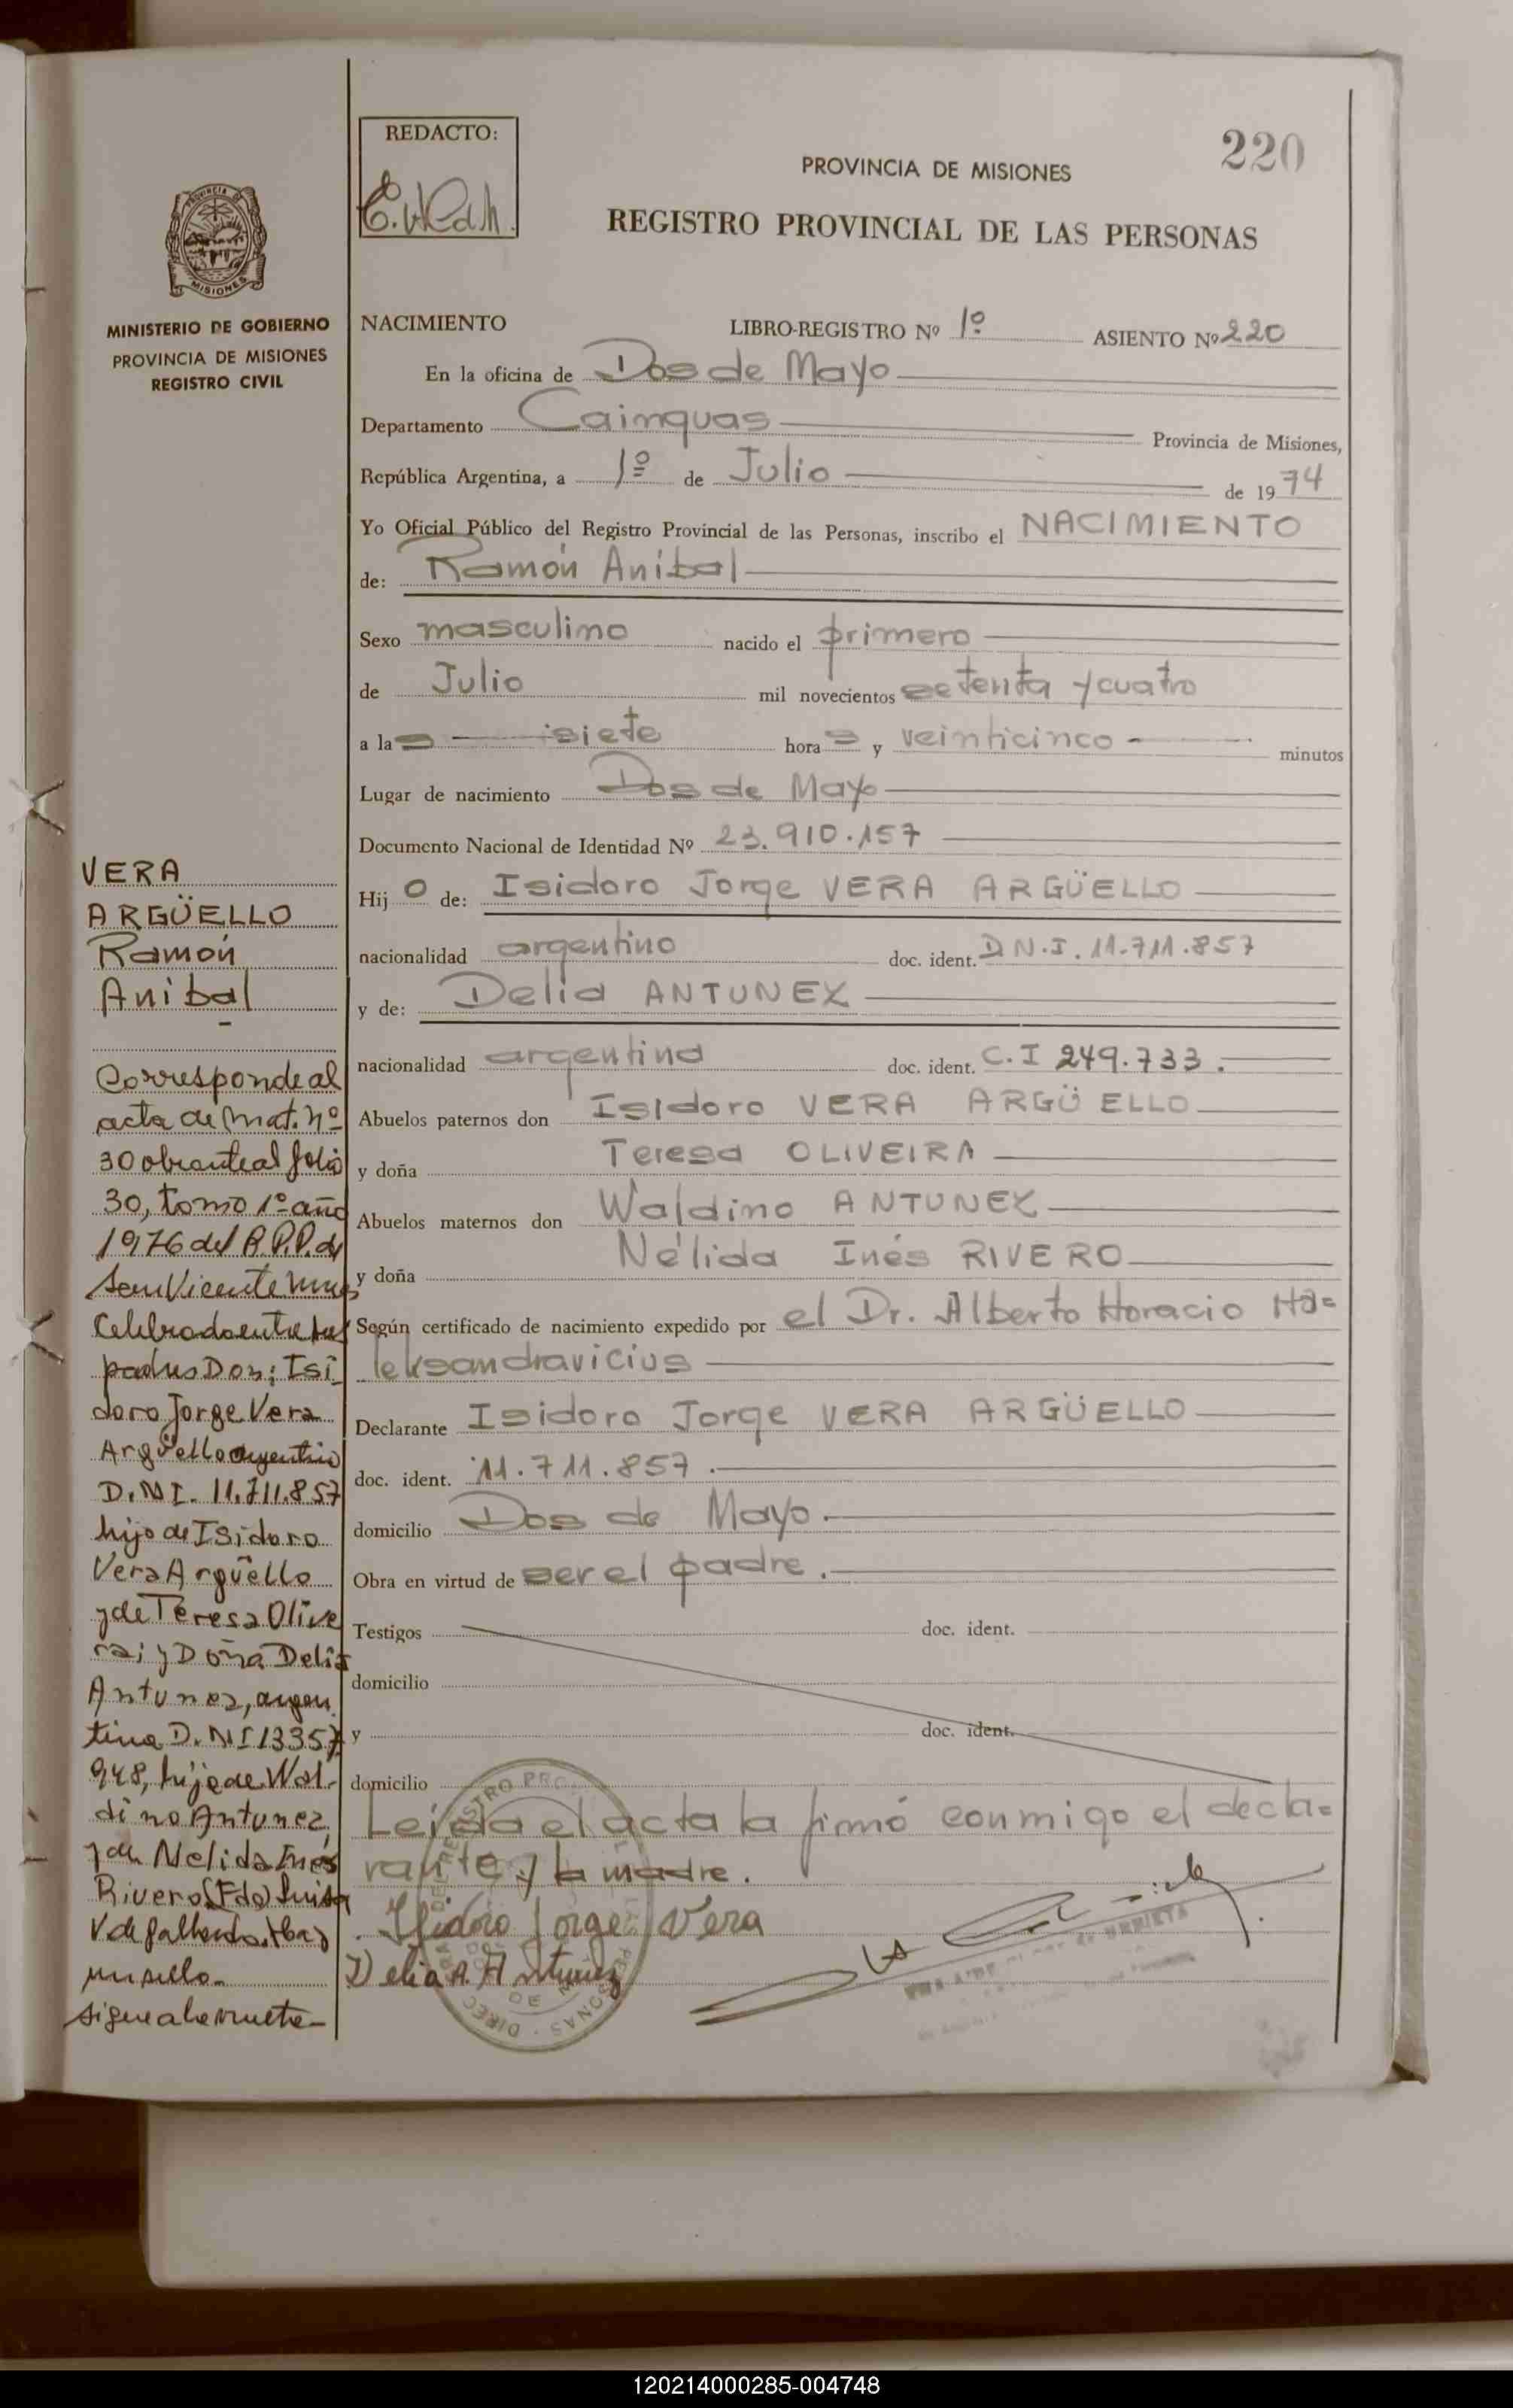 220
REDACTO:
PROVINCIA DE MISIONES
REGISTRO PROVINCIAL DE LAS PERSONAS
MISIONES
MINISTERIO DE GOBIERNO
PROVINCIA DE MISIONES
REGISTRO CIVIL
NACIMIENTO LIBRO-REGISTRO Nº 1º ASIENTO Nº 220
En la oficina de Dos de Mayo
Departamento Cainguas Provincia de Misiones,
República Argentina, a 1º de Julio de 1974
Yo Oficial Público del Registro Provincial de las Personas, inscribo el NACIMIENTO
de: Ramón Aníbal
Sexo masculino nacido el primero
de Julio mil novecientos setenta y cuatro
a las siete horas y veinticinco minutos
Lugar de nacimiento Dos de Mayo
Documento Nacional de Identidad Nº 23.910.157
Hijo de: Isidoro Jorge VERA ARGÜELLO
nacionalidad argentino doc. ident. D N.I. 11.711.857
y de: Delia ANTUNEZ
nacionalidad argentina doc. ident. C.I 249.733.
Abuelos paternos don Isidoro VERA ARGÜELLO
y doña Teresa OLIVEIRA
Abuelos maternos don Waldino ANTUNEZ
y doña Nélida Inés RIVERO
Según certificado de nacimiento expedido por el Dr. Alberto Horacio Ha=
leksandravicius
Declarante Isidoro Jorge VERA ARGÜELLO
doc. ident. 11.711.857.
domicilio Dos de Mayo.
Obra en virtud de ser el padre.
Testigos doc. ident.
domicilio
y doc. ident.
domicilio
Leída el acta la firmó conmigo el decla=
rante y la madre.
Isidoro Jorge Vera
Delia A. Antunez
VERA
ARGÜELLO
Ramón
Aníbal
Corresponde al
acta de mat. nº
30 obrante al folio
30, tomo 1º año
1976 del R.P.P. de
San Vicente Mnes
Celebrado entre sus
padres Don: Isi
doro Jorge Vera
Argüello argentino
D.N I. 11.711.857
hijo de Isidoro
Vera Argüello
y de Teresa Olive
ra; y Doña Delia
Antunez, argen
tina D.N I 13357
948, hija de Wal-
dino Antunez
y de Nelida Inés
Rivero (Fdo) Luisa
V de
un sello-
sigue a la vuelta-
120214000285-004748